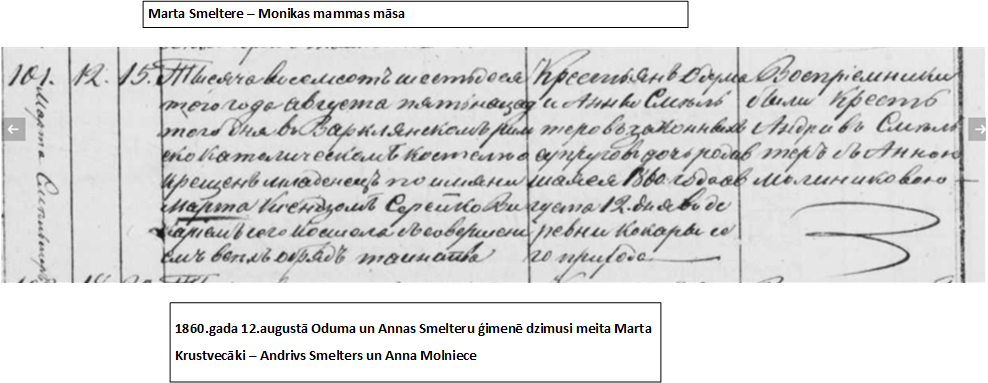 Marta Smeltere – Monikas mammas māsa
101.
Марта Смельтеръ
12. 15.
Тысяча восемсотъ шестьдеся
того года августа пятьнацад
того дня въ Варклянскомъ рим
ско католическомъ костелѣ
крещенъ младенецъ по имяни
Марта Ксендзомъ Серейко Ви
каріемъ сего костела съ совершені
емъ всехъ обрядъ таинства
Крестьянъ Одума
и Анны Смель
теровъ законныхъ
супруговъ дочь родив
шаяся 1860 года ав
густа 12 дня въ де
ревни Кокары се
го прихода
Восприемники
были Кресть
Андривъ Смель
теръ съ Анною
Молниковою
1860.gada 12.augustā Oduma un Annas Smelteru ģimenē dzimusi meita Marta
Krustvecāki – Andrivs Smelters un Anna Molniece